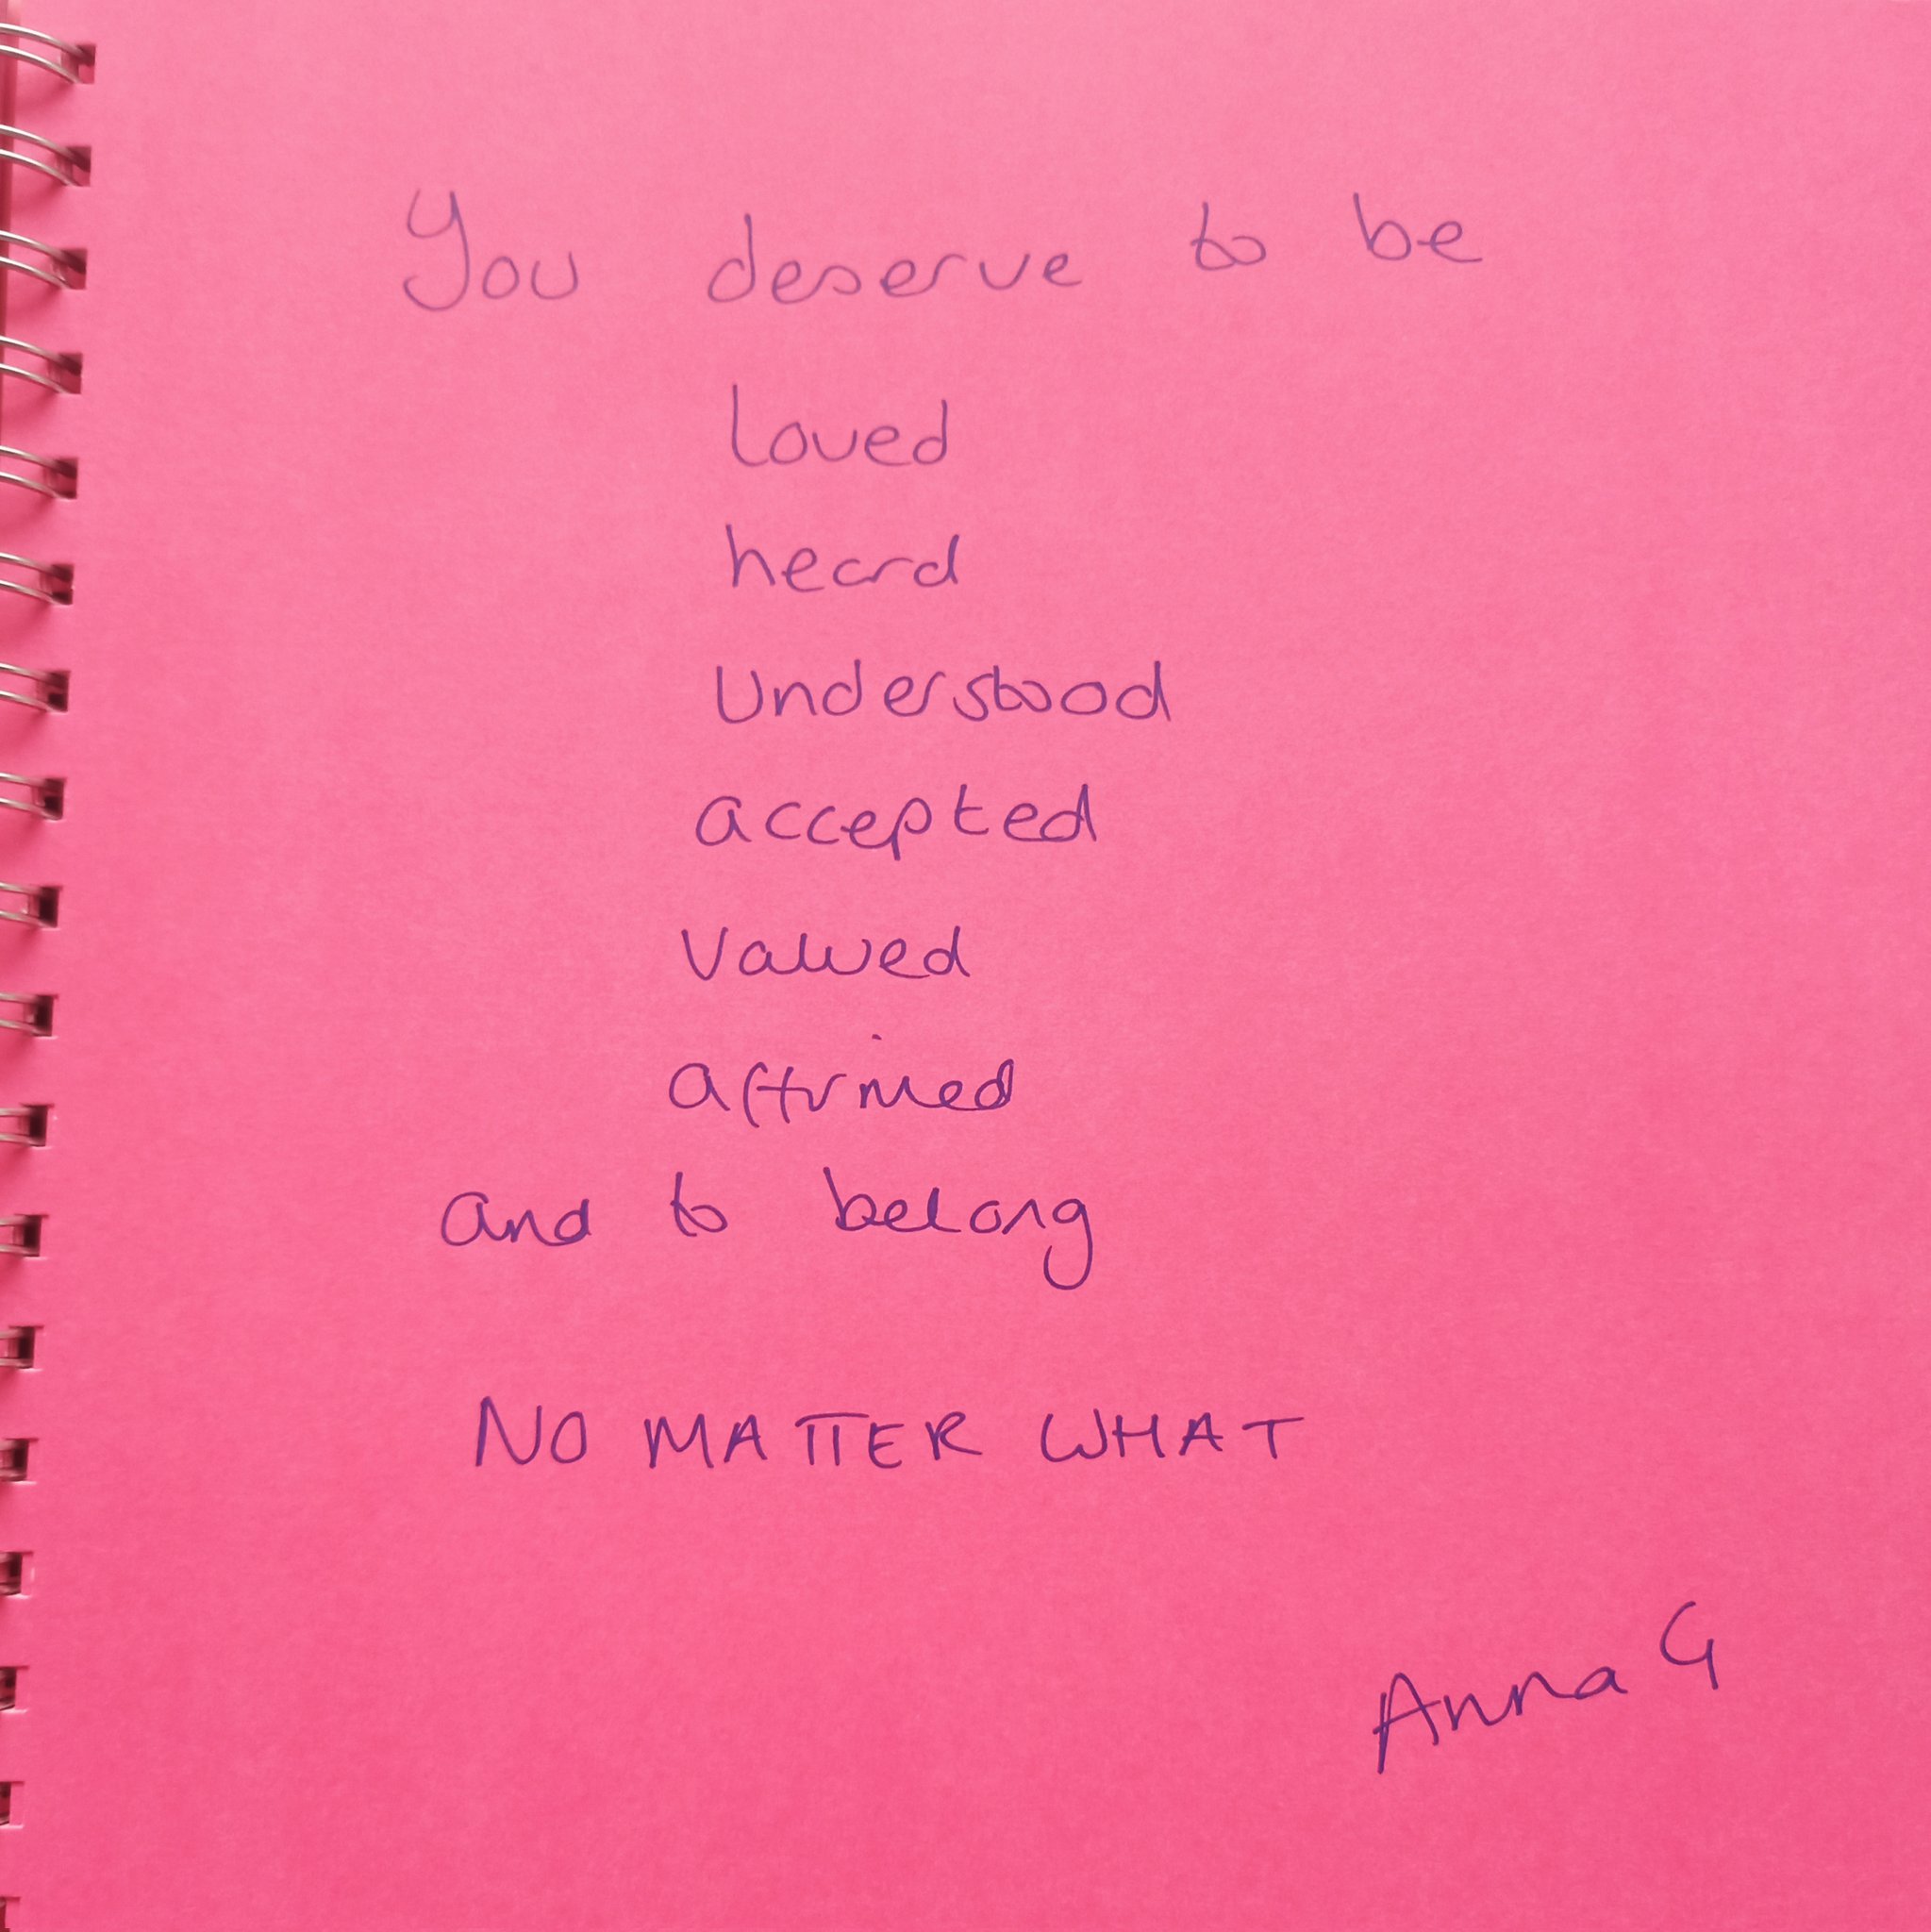 You deserve to be
loved
heard
understood
accepted
valued
affirmed
and to belong
NO MATTER WHAT
Anna G